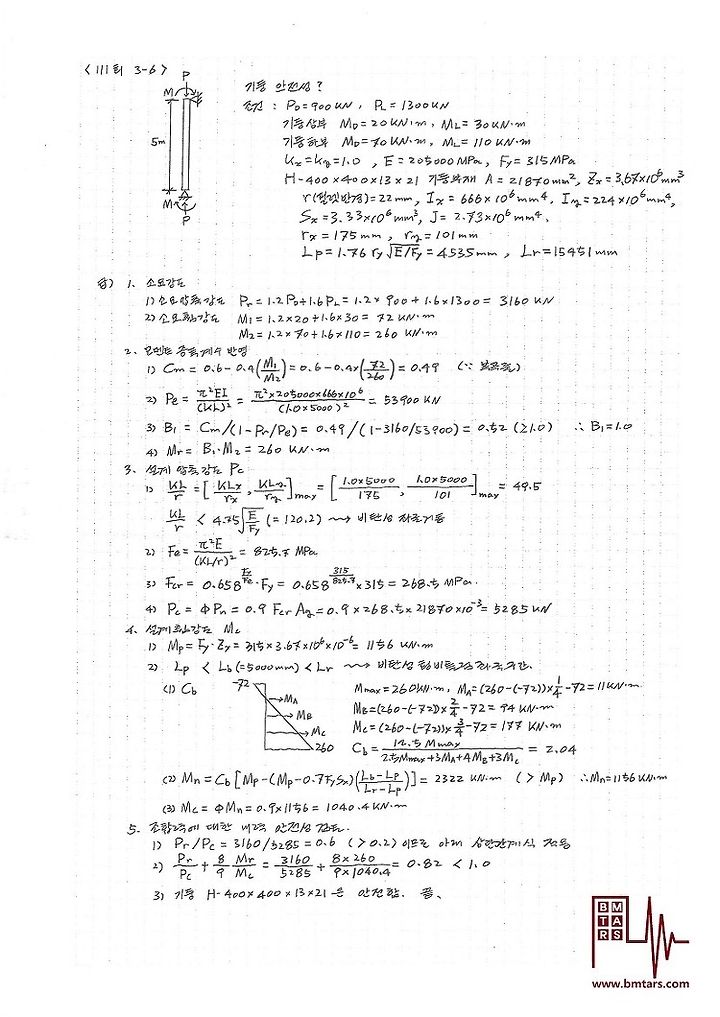 <111회 3-6>
P
M
5m
M
P
기둥 안전성 ?
조건 : PD=900kN , PL=1300kN
기둥상부 MD=20kN·m, ML=30kN·m
기둥하부 MD=70kN·m, ML=110kN·m
Kx=Ky=1.0 , E=205000MPa, Fy=315MPa
H-400×400×13×21 기둥부재 A=21870mm², Zx=3.67×10⁶mm³
r(필렛반경)=22mm, Ix=666×10⁶mm⁴, Iy=224×10⁶mm⁴,
Sx=3.33×10⁶mm³, J=2.73×10⁶mm⁴,
rx=175mm, ry=101mm
Lp=1.76 ry√E/Fy=4535mm , Lr=15451mm
답) 1. 소요강도
1) 소요압축강도 Pr=1.2PD+1.6PL=1.2×900+1.6×1300=3160kN
2) 소요휨강도 M1=1.2×20+1.6×30=72kN·m
M2=1.2×70+1.6×110=260kN·m
2. 모멘트 증폭계수 반영
1) Cm=0.6-0.4(M1/M2)=0.6-0.4×(72/260)=0.49 (∵ 복곡률)
2) Pe=π²EI/(KL)²=π²×205000×666×10⁶/(1.0×5000)²=53900kN
3) B1=Cm/(1-Pr/Pe)=0.49/(1-3160/53900)=0.52 (≥1.0) ∴B1=1.0
4) Mr=B1·M2=260kN·m
3. 설계 압축강도 Pc
1) KL/r=[KLx/rx, KLy/ry]max=[1.0×5000/175, 1.0×5000/101]max=49.5
KL/r < 4.75√E/Fy (=120.2) ⇝ 비탄성 좌굴기둥
2) Fe=π²E/(KL/r)²=825.7MPa
3) Fcr=0.658^(Fy/Fe)·Fy=0.658^(315/825.7)×315=268.5MPa.
4) Pc=ΦPn=0.9FcrAg=0.9×268.5×21870×10⁻³=5285kN
4. 설계휨강도 Mc
1) Mp=Fy·Zx=315×3.67×10⁶×10⁻⁶=1156kN·m
2) Lp < Lb(=5000mm) < Lr ⇝ 비탄성 횡비틀림좌굴구간.
(1) Cb
-72
MA
MB
Mc
260
Mmax=260kN·m, MA=(260-(-72))×1/4-72=11kN·m
MB=(260-(-72))×2/4-72=94kN·m
Mc=(260-(-72))×3/4-72=177kN·m
Cb=12.5Mmax/2.5Mmax+3MA+4MB+3Mc=2.04
(2) Mn=Cb[Mp-(Mp-0.7FySx)(Lb-Lp/Lr-Lp)]=2322kN·m (>Mp) ∴Mn=1156kN·m
(3) Mc=ΦMn=0.9×1156=1040.4kN·m
5. 조합력에 대한 내력 안전성 검토.
1) Pr/Pc=3160/5285=0.6 (>0.2) 이므로 아래 상관관계식 적용
2) Pr/Pc+8/9 Mr/Mc=3160/5285+8×260/9×1040.4=0.82<1.0
3) 기둥 H-400×400×13×21은 안전함. 끝.
BM
TA
RS
www.bmtars.com